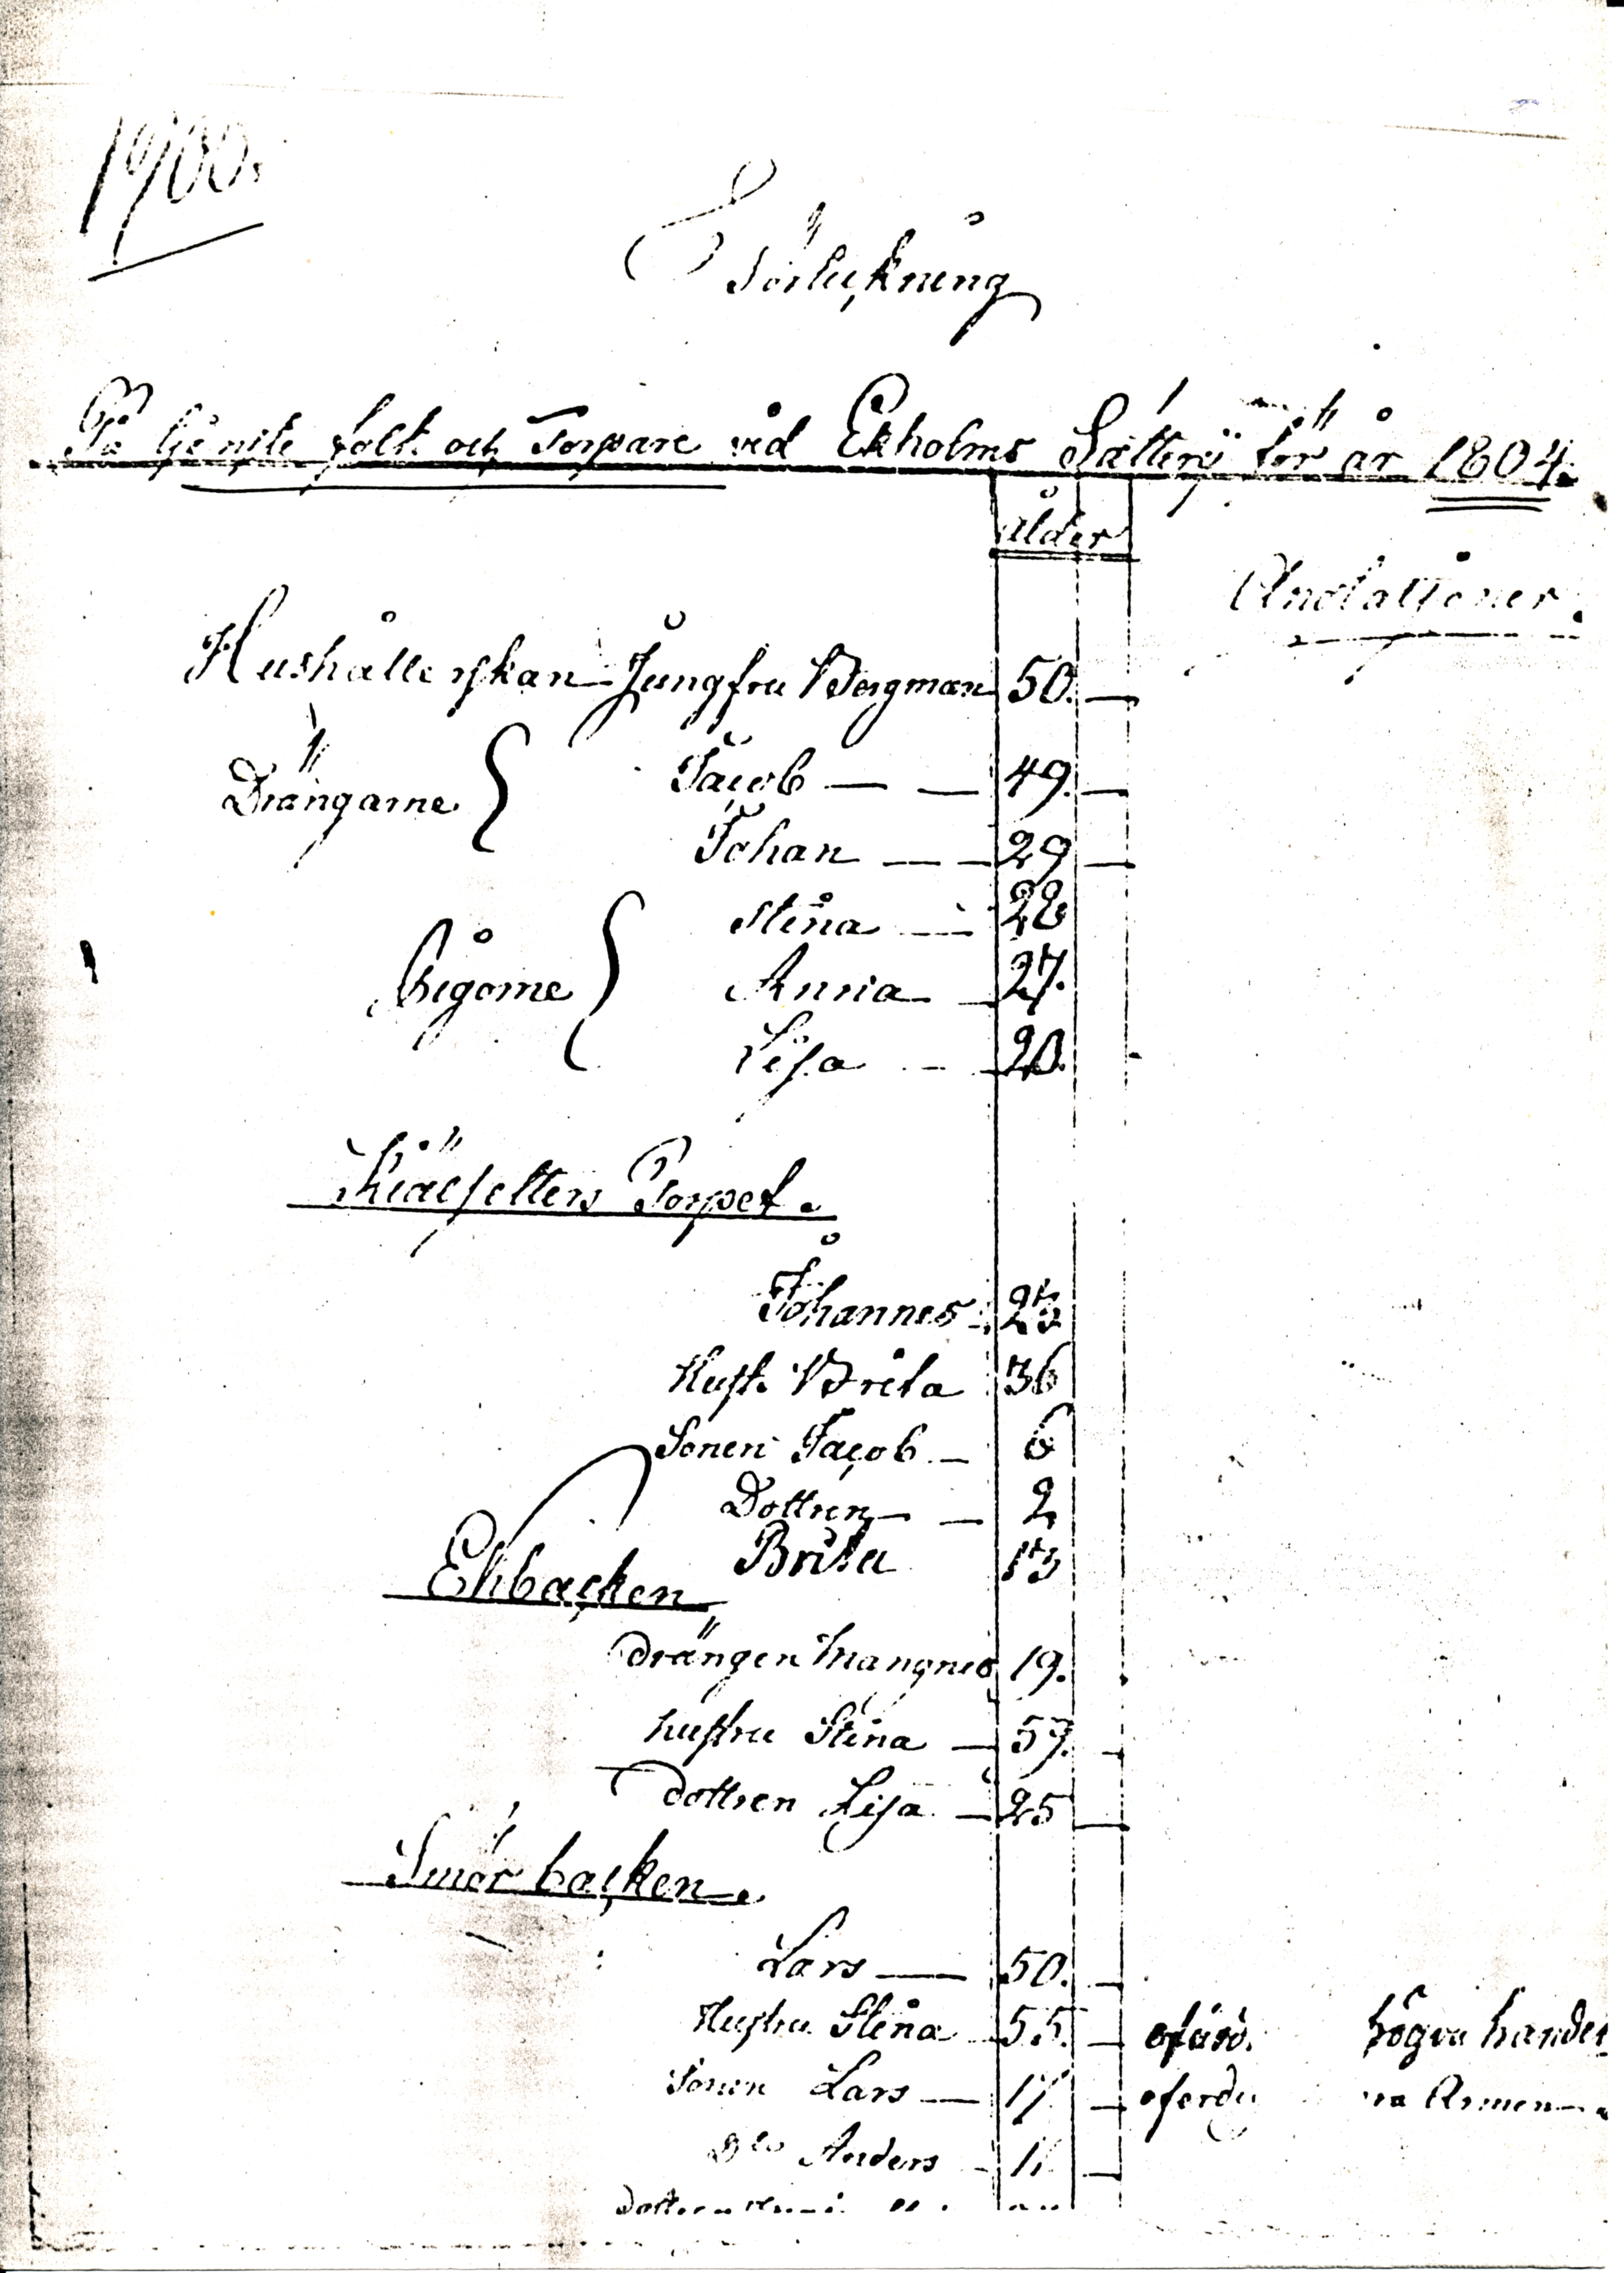 1900.
Förtekning
På tjenste folk och Torpare vid Ekholms Sätterij för år 1804.
ålder
Anotationer.
Hushållerskan Jungfru Bergman 50.
Drängarne
Jacob 49.
Johan 29
Pigorne
Stina 28
Anna 27.
Lisa 20.
Torpet.
Johannes 23
Hust. Brita 36
Sonen Jacob 6
Dottren 2
Ekbacken
Brita 13
Drängen Mangnes 19.
hustru Stina 57.
dottren Lisa 25
Smörbacken.
Lars 50.
Hustru Stina 55. högra handen
Sonen Lars 17 Armen
Dto Anders 11